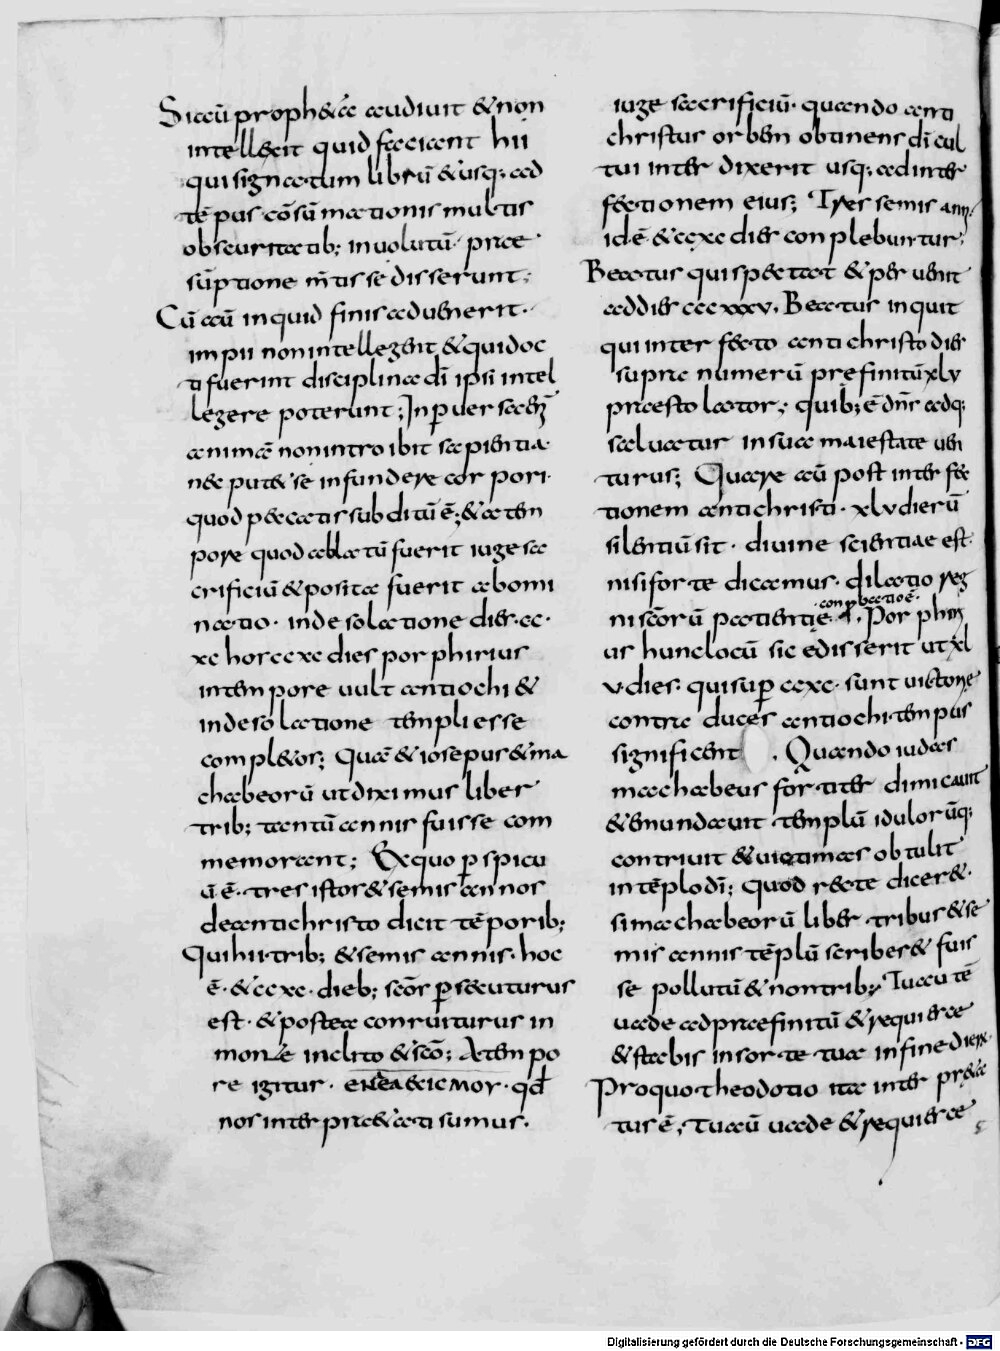 Si aũ prophæa audiuit & non
intellexit quid faciant hii
qui signatum librũ & usq; ad
tẽpus cõsũmationis multis
obscuritatib; inuolutũ· prae
sũptione mtis se disserunt;
Cũ aũ inquid finis aduenerit·
impii non intellegent & qui doc
ti fuerint disciplina dĩ ipsi intel
legere poterunt; In peruersam
animã non introibit sapientia·
nec pot& se infundere corpori·
quod peccatis subditũ ẽ; & a tem
pore quod ablatũ fuerit iuge sa
crificiũ & posita fuerit abomi
natio· in desolatione dies· cc·
xc hos ccxc dies porphirius
in tempore uult antiochi &
in desolatione templi esse
compl&os; Quã & iosepus & ma
chabeorũ ut diximus liber
trib; tantũ annis fuisse com
memorant; Ex quo pspicu
ũ ẽ· tres istos & semis annos
de antichristo dicit tẽporib;
Qui hii trib; & semis annis· hoc
ẽ· & ccxc· dieb; scõs psecuturus
est· & postea conruiturus in
monte inclito & scõ; A tempo
re igitur· ενδελεχισμος· qđ
nos interpr&ati sumus·
iuge sacrificiũ· quando anti
christus orbem obtinens dĩ cul
tui inter dixerit usq; ad inter
fectionem eius; Tres semis anni·
id ẽ· & ccxc dies conplebuntur;
Beatus qui spectat & peruenit
ad dies cccxxxv· Beatus inquit
qui interfecto antichristo dies
supra numerũ prefinitũ xlv
praestolator; quib; ẽ dñs adq;
saluatur in sua maiestate uen
turus; Quare aũ post interfec
tionem antichristi· xlv dierũ
silentiũ sit· diuine scientiae est·
nisi forte dicamus· dilatio reg
ni scõrũ patientiẹ conpbatio ẽ· Porphiri
us hunc locũ sic edisserit ut xl
v· dies· qui sup ccxc· sunt uictorie
contra duces antiochi tempus
significent· Quando iudas
machabeus fortiter dimicauit
& emundauit templũ idulorũq;
contriuit & uictimas obtulit
in tẽplo dĩ; Quod recte dicer&·
si machabeorũ liber tribus & se
mis annis tẽplũ scriber& fuis
se pollutũ & non trib; Tu autẽ
uade ad praefinitũ & requiesce
& stabis in sorte tua in fine dierũ·
Pro quo theodotio ita interpr&a
tus ẽ; Tu aũ uade & requiesce